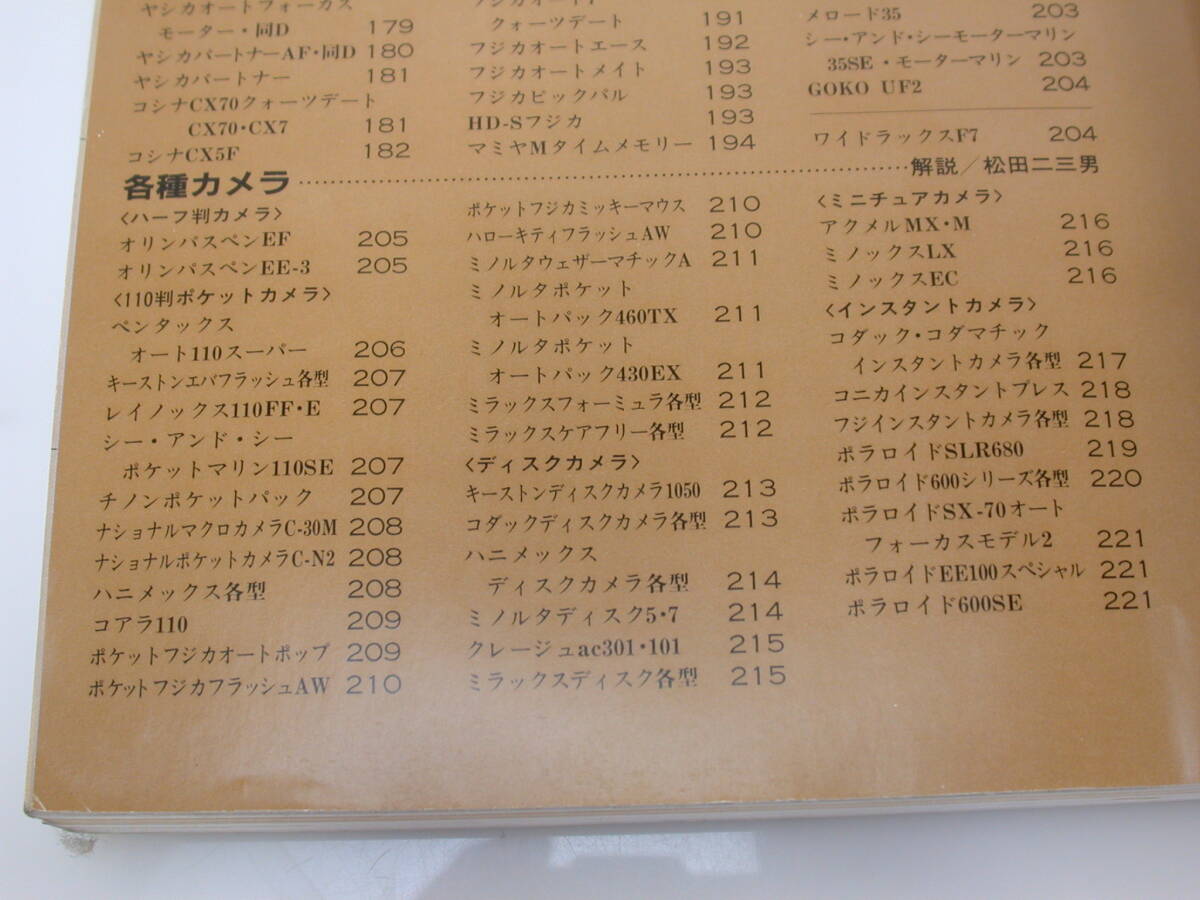 ヤシカオートフォーカス
モーター・同D 179
ヤシカパートナーAF・同D 180
ヤシカパートナー 181
コシナCX70クォーツデート
CX70・CX7 181
コシナCX5F 182
クォーツデート 191
フジカオートエース 192
フジカオートメイト 193
フジカピックパル 193
HD-Sフジカ 193
マミヤMタイムメモリー 194
メロード35 203
シー・アンド・シーモーターマリン
35SE・モーターマリン 203
GOKO UF2 204
ワイドラックスF7 204
各種カメラ……解説／松田二三男
〈ハーフ判カメラ〉
オリンパスペンEF 205
オリンパスペンEE-3 205
〈110判ポケットカメラ〉
ペンタックス
オート110スーパー 206
キーストンエバフラッシュ各型 207
レイノックス110FF・E 207
シー・アンド・シー
ポケットマリン110SE 207
チノンポケットパック 207
ナショナルマクロカメラC-30M 208
ナショナルポケットカメラC-N2 208
ハニメックス各型 208
コアラ110 209
ポケットフジカオートポップ 209
ポケットフジカフラッシュAW 210
ポケットフジカミッキーマウス 210
ハローキティフラッシュAW 210
ミノルタウェザーマチックA 211
ミノルタポケット
オートパック460TX 211
ミノルタポケット
オートパック430EX 211
ミラックスフォーミュラ各型 212
ミラックスケアフリー各型 212
〈ディスクカメラ〉
キーストンディスクカメラ1050 213
コダックディスクカメラ各型 213
ハニメックス
ディスクカメラ各型 214
ミノルタディスク5・7 214
クレージュac301・101 215
ミラックスディスク各型 215
〈ミニチュアカメラ〉
アクメルMX・M 216
ミノックスLX 216
ミノックスEC 216
〈インスタントカメラ〉
コダック・コダマチック
インスタントカメラ各型 217
コニカインスタントプレス 218
フジインスタントカメラ各型 218
ポラロイドSLR680 219
ポラロイド600シリーズ各型 220
ポラロイドSX-70オート
フォーカスモデル2 221
ポラロイドEE100スペシャル 221
ポラロイド600SE 221